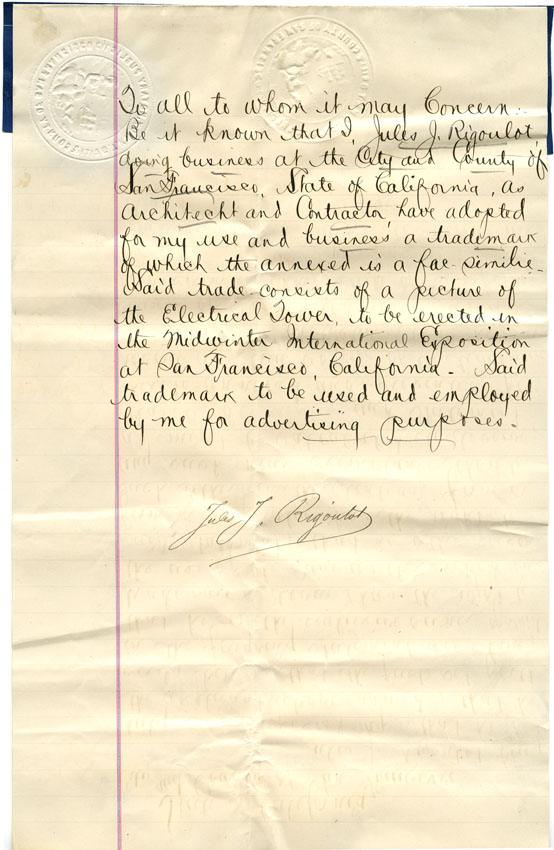 To all to whom it may Concern:
Be it known that I, Jules J. Rigoulot,
doing business at the City and County of
San Francisco, State of California, as
Architecht and Contractor, have adopted
for my use and business a trademark
of which the annexed is a fac-similie.
Said trade consists of a picture of
the Electrical Tower, to be erected in
the Midwinter International Exposition
at San Francisco, California. Said
trademark to be used and employed
by me for advertising purposes.
Jules J. Rigoulot